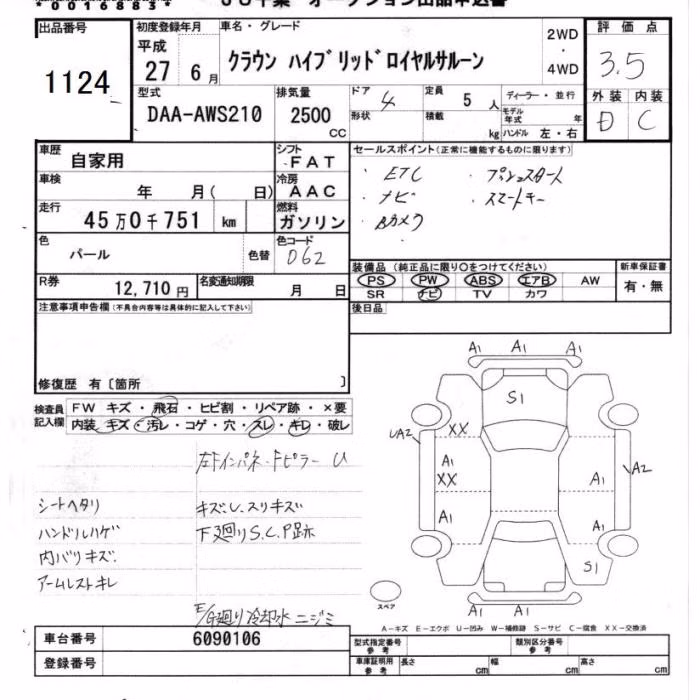 00168833
JU千葉 オークション出品申込書
出品番号 1124
初度登録年月 平成 27 6月
車名・グレード クラウン ハイブリッドロイヤルサルーン
2WD ・ 4WD
評価点 3.5
外装 D 内装 C
型式 DAA-AWS210
排気量 2500 cc
ドア 4 定員 5人 ディーラー・並行
形状 積載 kg モデル年式 年
ハンドル 左・右
車歴 自家用
シフト FAT
車検 年 月( 日)
冷房 AAC
走行 45万0千751 km
燃料 ガソリン
色 パール 色替
色コード 062
R券 12,710円 名変通知期限 月 日
セールスポイント(正常に機能するものに限ります)
・ETC ・プッシュスタート
・ナビ ・スマートキー
・Bカメラ
装備品 (純正品に限り○をつけてください)
PS PW ABS エアB AW
SR ナビ TV カワ
新車保証書 有・無
後日品
注意事項申告欄(不具合内容等は具体的に記入して下さい)
修復歴 有〔箇所 〕
検査員記入欄
FW キズ・飛石・ヒビ割・リペア跡・×要
内装 キズ・汚レ・コゲ・穴・スレ・キレ・破レ
左Fインパネ・Fピラー U
シートヘタリ キズU、スリキズ
ハンドルハゲ 下廻りS.C.P跡
内バリキズ.
アームレストキレ
E/G廻り冷却水ニジミ
A1 A1 A1
S1
XX
UA2 A1 A1 A2
XX
A1 A1
S1
A1 A1
スペア
A-キズ E-エクボ U-凹み W-補修跡 S-サビ C-腐食 XX-交換済
車台番号 6090106
登録番号
型式指定番号 参考 類別区分番号 参考
車庫証明用 参考 長さ cm 幅 cm 高さ cm